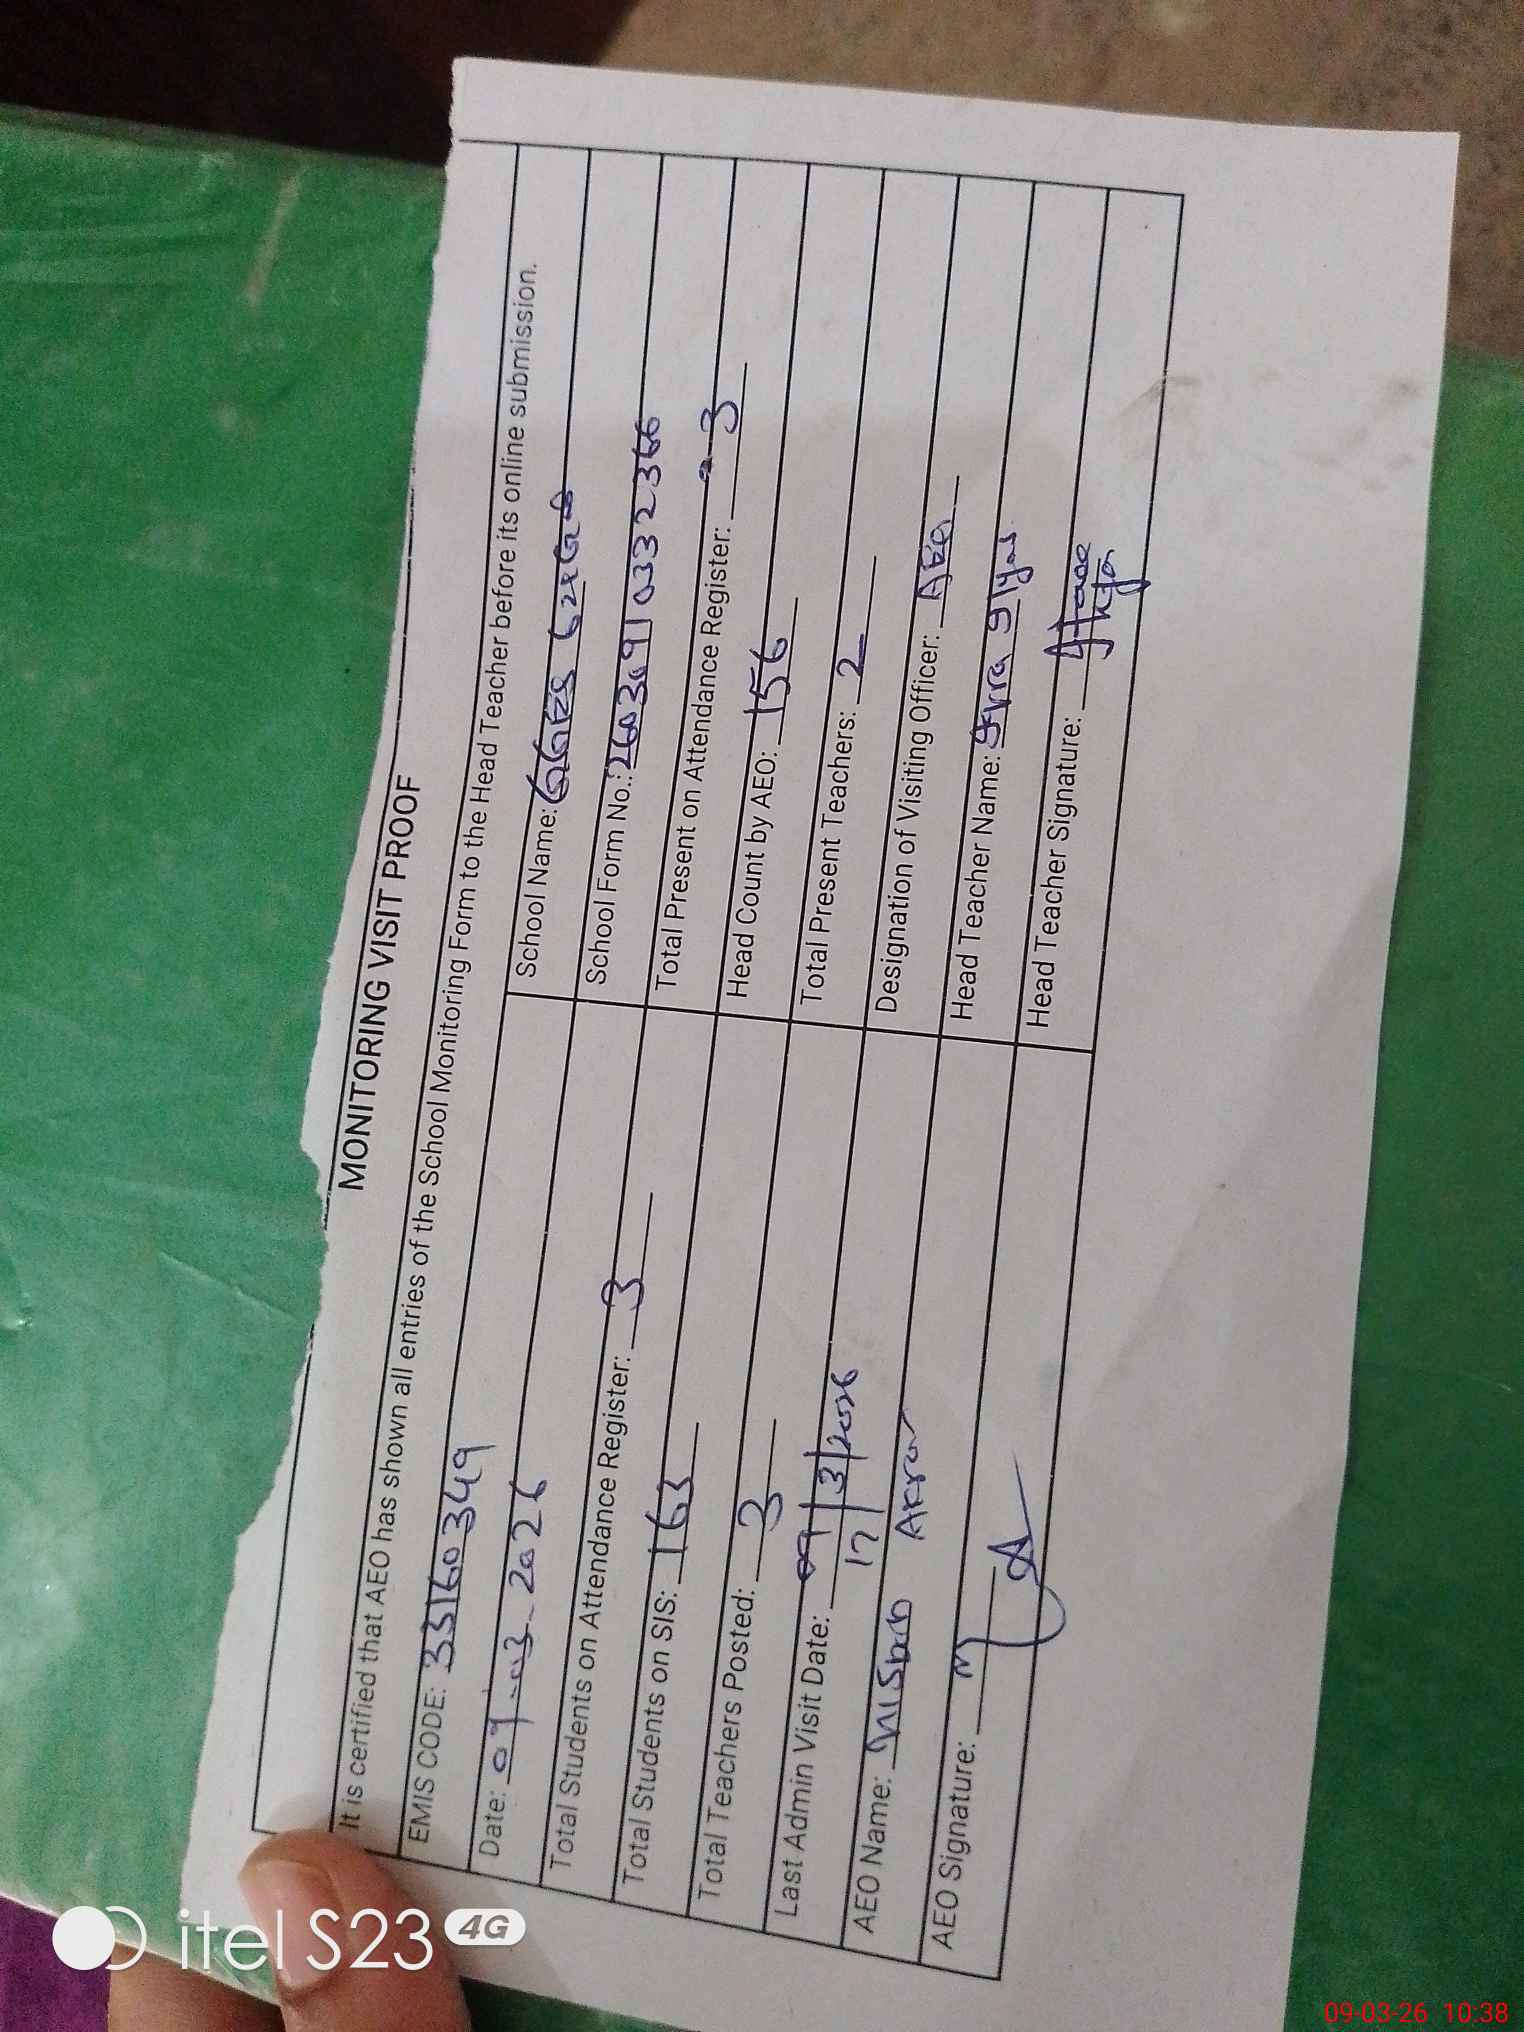 MONITORING VISIT PROOF
It is certified that AEO has shown all entries of the School Monitoring Form to the Head Teacher before its online submission.
EMIS CODE: 33160349
School Name:
Date: 09-03-2026
School Form No.:
Total Students on Attendance Register: 3
Total Present on Attendance Register: 3
Total Students on SIS: 163
Head Count by AEO: 156
Total Teachers Posted: 3
Total Present Teachers: 2
Last Admin Visit Date: 17/3/2026
Designation of Visiting Officer: AEO
AEO Name: Misbah Akram
Head Teacher Name:
AEO Signature:
Head Teacher Signature:
itel S23 4G
09-03-26 10:38